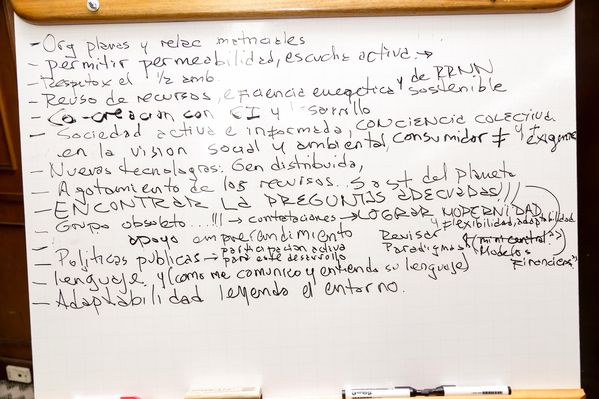 - Org planas y relac matriciales
- permitir permeabilidad, escucha activa. →
- Respetar el 1/2 amb.
- Reuso de recursos, eficiencia energética y de RRNN sostenible
- Co-creación con CI y
- Sociedad activa e informada, CONCIENCIA COLECTIVA
en la visión social y ambiental, consumidor ≠ y + exigente
- Nuevas tecnologías: Gen distribuida,
- Agotamiento de los recursos... Sost del planeta
- ENCONTRAR LA PREGUNTAS ADECUADAS!!!
- Grupo obsoleto...!!! → contrataciones → LOGRAR MODERNIDAD
Flexibilidad, adaptabilidad
- apoyo emprendimiento Revisar
("mini control")
- Políticas publicas → participación activa Paradigmas Modelos
para este desarrollo Financieros
- lenguaje y (como me comunico y entiendo su lenguaje)
- Adaptabilidad leyendo el entorno.